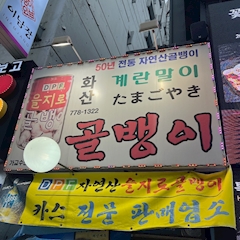 50년 전통 자연산골뱅이
DPF
을지로
골뱅이
화산
계란말이
たまごやき
778-1322
골뱅이
DPF 자연산 을지로골뱅이
카스 전문 판매업소